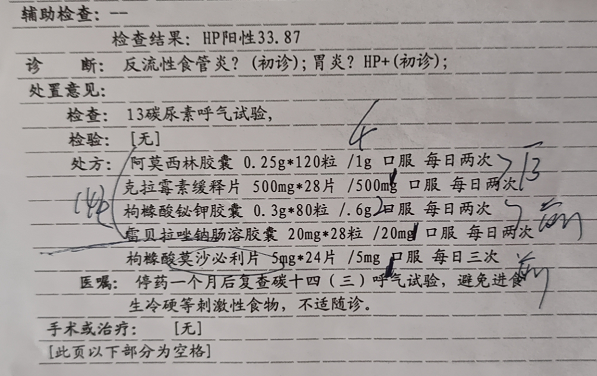 辅助检查：--
检查结果：HP阳性33.87
诊 断：反流性食管炎？(初诊)；胃炎？HP+(初诊)；
处置意见：
检查：13碳尿素呼气试验，
检验：[无]
4
处方：阿莫西林胶囊 0.25g*120粒 /1g 口服 每日两次
克拉霉素缓释片 500mg*28片 /500mg 口服 每日两次
枸橼酸铋钾胶囊 0.3g*80粒 /.6g 2 口服 每日两次
雷贝拉唑钠肠溶胶囊 20mg*28粒 /20mg 口服 每日两次
枸橼酸莫沙必利片 5mg*24片 /5mg 口服 每日三次
医嘱：停药一个月后复查碳十四(三)呼气试验，避免进食
生冷硬等刺激性食物，不适随诊。
手术或治疗：[无]
[此页以下部分为空格]